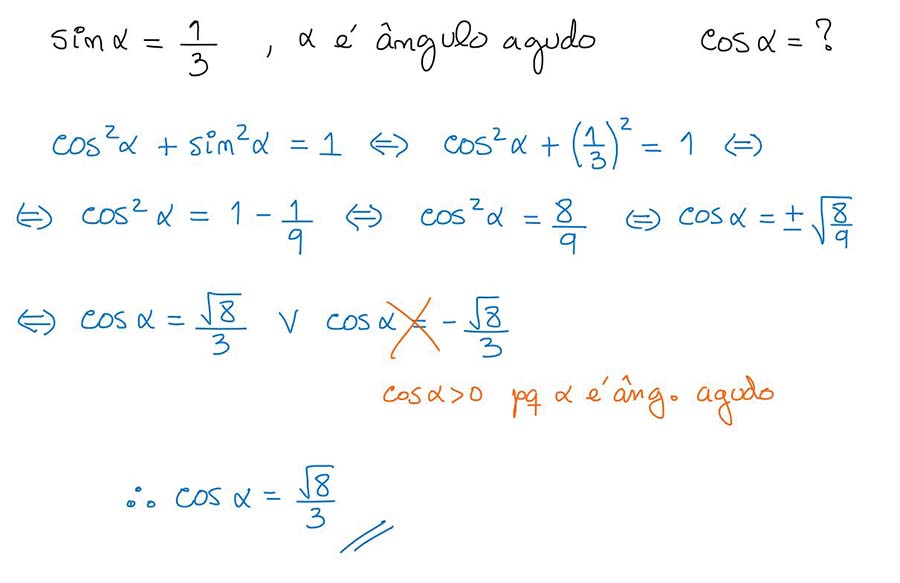 sinα = 1/3 , α é ângulo agudo cosα = ?
cos²α + sin²α = 1 ⇔ cos²α + (1/3)² = 1 ⇔
⇔ cos²α = 1 - 1/9 ⇔ cos²α = 8/9 ⇔ cosα = ±√(8/9)
⇔ cosα = √8/3 ∨ cosα = -√8/3
cosα>0 pq α é âng. agudo
∴ cosα = √8/3